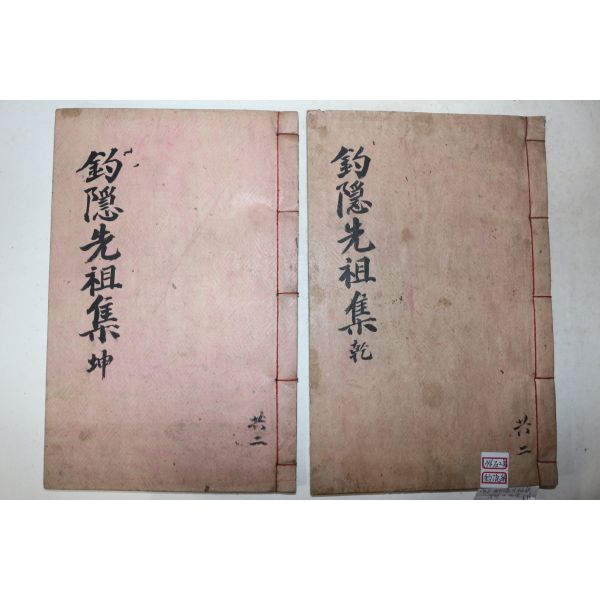 釣隠先祖集 乾
共二
釣隠先祖集 坤
共二